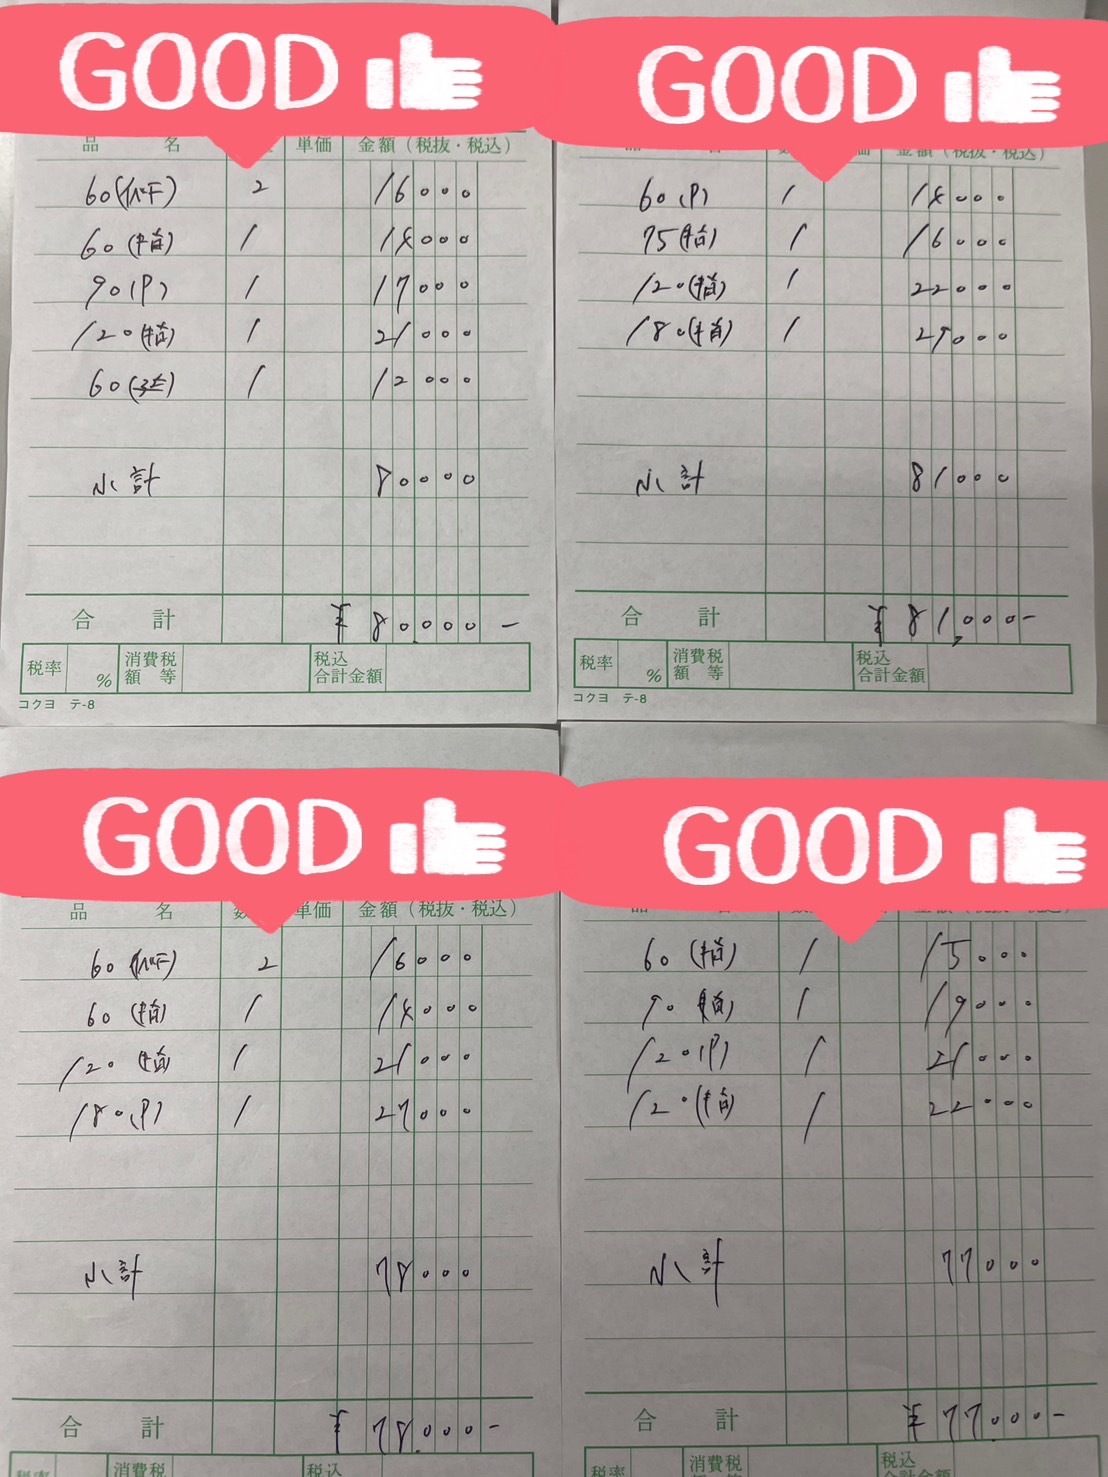 GOOD
品 名 単価 金額（税抜・税込）
60 2 16000
60(指) 1 14000
90(P) 1 17000
120(指) 1 21000
60 1 12000
小計 80000
合 計 ¥80,000-
税率 % 消費税額等 税込合計金額
コクヨ テ-8
GOOD
金額（税抜・税込）
60(P) 1 14000
75(指) 1 16000
120(指) 1 22000
180(指) 1 29000
小計 81000
合 計 ¥81,000-
税率 % 消費税額等 税込合計金額
コクヨ テ-8
GOOD
品 名 数 単価 金額（税抜・税込）
60 2 16000
60(指) 1 14000
120(指) 1 21000
180(P) 1 27000
小計 78000
合 計 ¥78,000-
税率 消費税 税込
GOOD
60(指) 1 15000
90(指) 1 19000
120(P) 1 21000
120(指) 1 22000
小計 77000
合 計 ¥77,000-
税率 消費税 税込